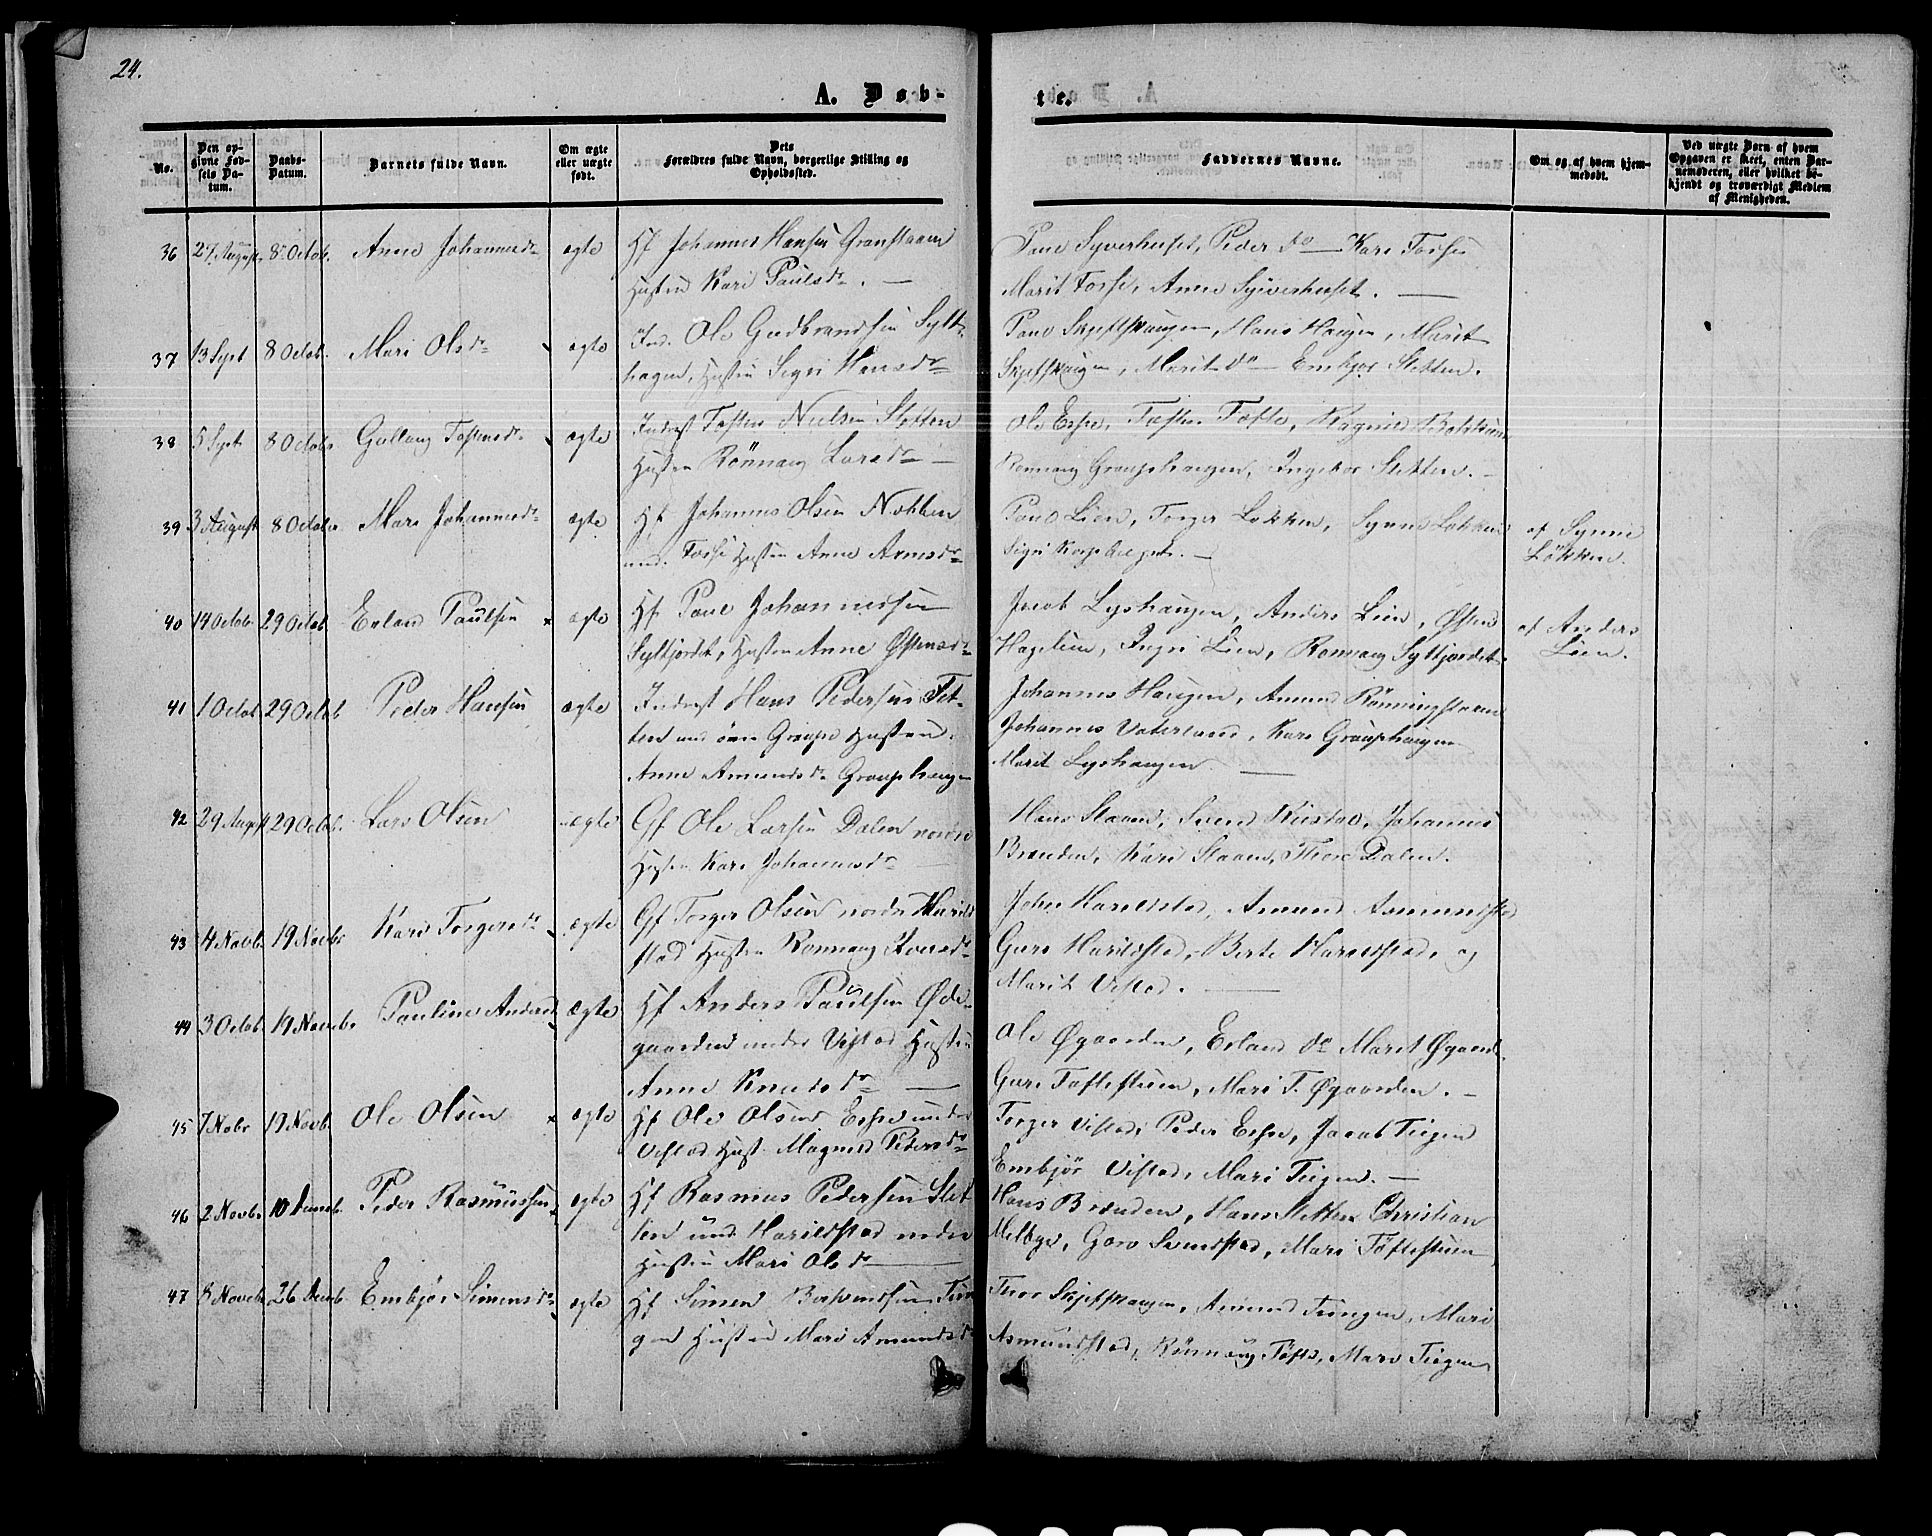 24.
A. Døb-
te.
No.
Den op-
givne Fød-
sels Da-
tum.
Daabs-
Datum.
Barnets fulde Navn.
Om ægte
eller uægte
født.
Dets
Forældres fulde Navn, borgerlige Stilling og
Opholdssted.
Faddernes Navne.
Om og af hvem hjem-
medøbt.
Ved uægte Barn af hvem
Opgaven er skeet, enten Bar-
nemoderen, eller hvilket be-
kjendt og troværdigt Medlem
af Menigheden.
36 27 August 8 Octob. Anne Johannesdr ægte Hf Johannes Hansen
Hustru Kari Paulsdr. —
Paul Syverhuset, Peder do — Kari Forse
Marit Forse, Anne Syverhuset. —
37 13 Sept 8 Octob. Mari Olsdr ægte Ind. Ole Gudbrandsen Sylt-
hagen, Hustru Sigri Hansdr
Paul Skjefshaugen, Hans Haugen, Marit
Skjefshaugen, Marit do — Embjør Sletten.
38 5 Sept 8 Octob Tostensdr ægte Inderst Tosten Nielsen Sletten
Hustru Rønnaug Larsdr —
Ole Espe, Tosten Tofte, Ragnild
Rønnaug Graupehaugen, Ingebor Sletten. —
39 3 August 8 Octob. Mari Johannesdr ægte Hf Johannes Olsen Nökken
und. Forse Hustru Anne
Paul Lien, Torger Løkken, Synne Løkken
Sigri —
af Synne
Løkken.
40 14 Octob 29 Octob Erland Paulsen × ægte Hf Paul Johannessen
Syltjordet, Hustru Anne Østensdr
Jacob Lyshaugen, Anders Lien, Østen
Hagelien, Ingri Lien, Rønnaug Syltjordet.
af Anders
Lien.
41 1 Octob 29 Octob Peder Hansen ægte Inderst Hans Pedersen
und øvre Graupe Hustru
Anne Amundsdr Graupehaugen
Johannes Haugen, Amund
Johannes Vaterland, Kari Graupehaugen
Marit Lyshaugen —
42 29 August 29 Octob. Lars Olsen ægte Gf Ole Larsen Dalen nordre
Hustru Kari Johannesdr
Hans Slaaen, Svend Rustad, Johannes
Brænden, Kari Slaaen, Thore Dalen.
43 4 Novb. 19 Novbr Kari Torgersdr ægte Gf Torger Olsen nordre Harild-
stad Hustru Rønnaug Iversdr
John Harildstad, Amund Asmundstad
Guro Harildstad, Berte Harildstad, og
Marit Vistad. —
44 3 Octob. 19 Novbr. Pauline Andersd ægte Hf Anders Paulsen Øde-
gaarden under Vistad Hustru
Anne Knudsdr —
Ole Øgaarden, Erland do Marit Øgaard.
Guri Toftestuen, Mari T. Øgaarden. —
45 7 Nobr 19 Novb. Ole Olsen × ægte Hf Ole Olsen Espe under
Vistad Hust. Magnild Pedersdr
Torger Vistad, Peder Espe, Jacob Tiegen
Embjør Vistad, Mari Tiegen. —
46 2 Novb. 10 Decemb. Peder Rasmussen ægte Hf Rasmus Pedersen Slet-
ten und Harildstad nordre
Hustru Mari Olsdr —
Hans Brænden, Hans Sletten Christian
Melbye, Goro Svendstad, Mari Toftestuen
47 8 Novb 26 Decemb. Embjør Simensdr ægte Hf Simen
gen Hustru Mari Amundsdr
Thor Skjefshaugen, Amund Tiengen, Mari
Asmundstad, Rønnaug Tofte, Mari Tiegen